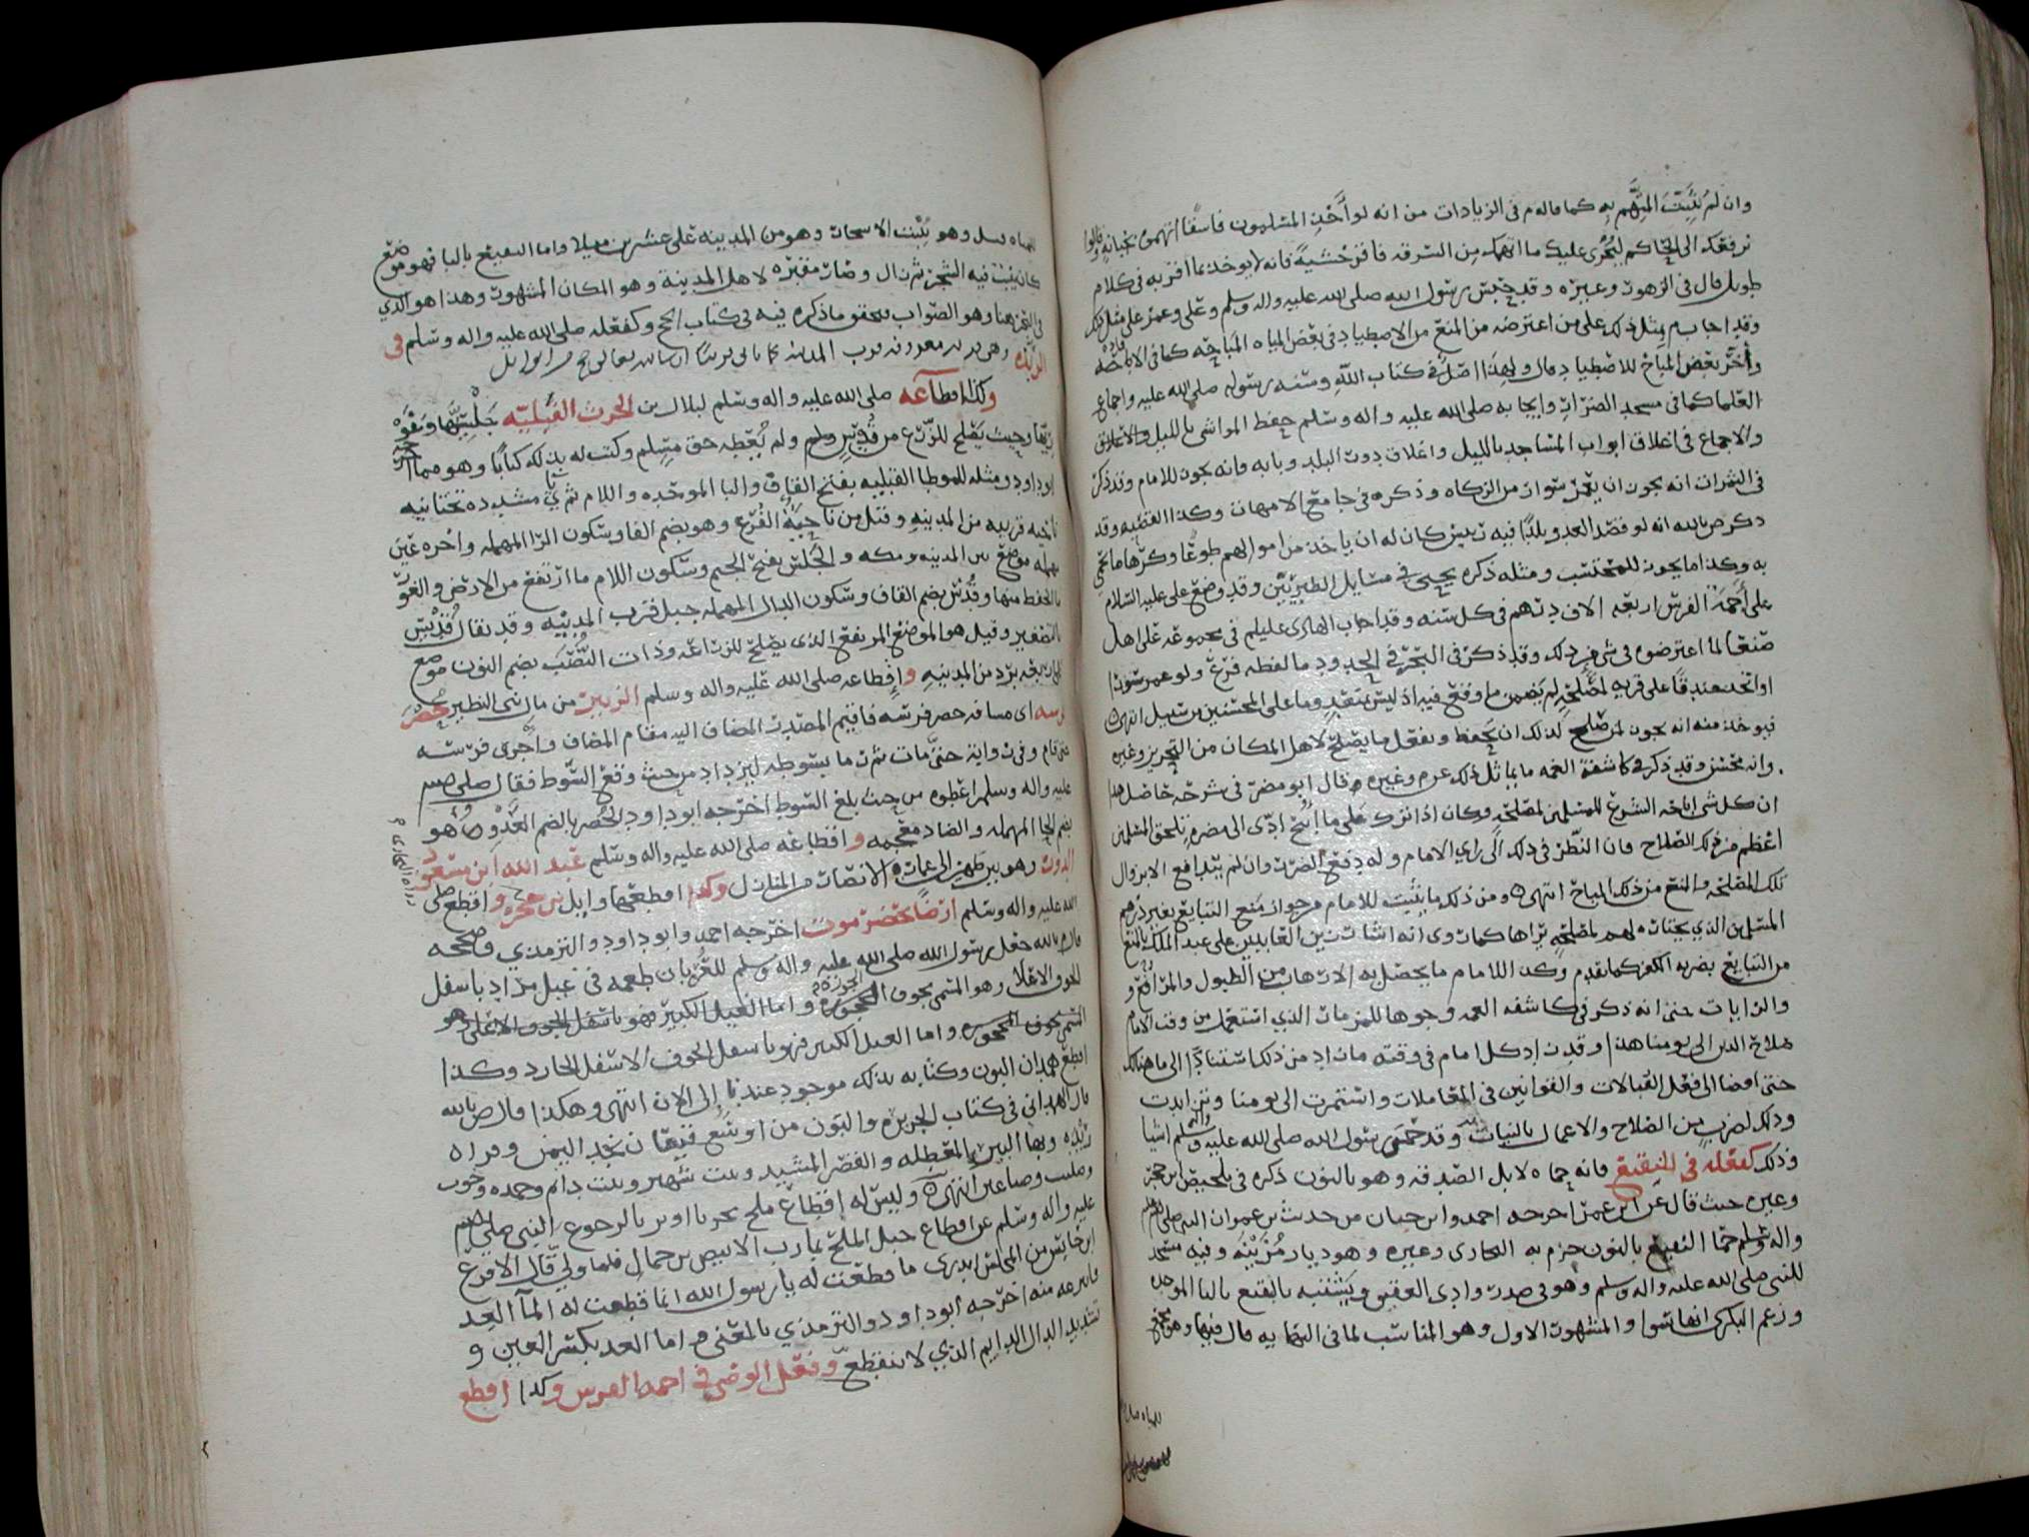 وان لم يثبت المتهم به كما قالوم في الزيادات من انه لو أخذ المسلمون فاسقا اتهموه بخيانة وقالوا
نرفعك الى الحاكم ليجرى عليك ما اتهمك من السرقه فاقر خشية فانه لا يوخذ بما اقر به في كلام
طويل قال في الزهور وغيره وقد حبس رسول الله صلى الله عليه واله وسلم وعلي وعمر على مثل ذلك
وقد اجاب م بمثل ذلك على من اعترضه من المنع من الاصطياد في بعض المياه المباحه كما في الاباضه
واخذ بعض المباح للاصطياد قال ولهذا اصل في كتاب الله وسنه رسوله صلى الله عليه واجماع
العلما كما في مسجد الضرار وايجابه صلى الله عليه واله وسلم حفظ المواشى بالليل والاغلاق
والاجماع في اغلاق ابواب المساجد بالليل واغلاق دور البلد وبابه وانه يجوز للامام وقد ذكر
في الثمرات انه يجوز ان يعمر سوار من الزكاه وذكره في جامع الامهات وكذا الفقيه وقد
ذكر ص بالله انه لو قصد العدو بلدا فيه رئيس كان له ان ياخذ من اموالهم طوعا وكرها ما يحمى
به وكذا ما يجوز للمحتسب ومثله ذكره يحيى في مسايل الطبريين وقد وضع على عليه السلام
على أجمة الفرس اربعه الاف درهم في كل سنه وقد اجاب الهادى عليلم في مجموعه على اهل
صنعا لما اعترضوه في شي من ذلك وقد ذكر في البحر في الحدود ما لفظه فرع ولو عمر سورا
او اتخذ خندقا على قريه لمصلحه لم يضمن ما وقع فيه اذ ليس بمتعد وما على المحسنين من سبيل انتهى
فيوخذ منه انه يجوز لمن صلح لذلك ان يحفظ ويفعل ما يصلح لاهل المكان من التحريز وغيره
وانه محسن وقد ذكر في كاشفة الغمه ما يماثل ذلك عرم وغيره م قال ابو مضر في شرحه حاصل هذا
ان كل شى اباحه الشرع للمسلمين لمصلحه وكان اذا ترك على ما ابيح ادى الى مضره تلحق المسلمين
اعظم من ذلك الصلاح فان النظر في ذلك الى راي الامام وله دفع الضرر وان لم يتدافع الا بزوال
تلك المصلحه والمنع من ذلك المباح انتهى ومن ذلك ما يثبت للامام من جواز منع التبايع بغير درهم
المسلمين الذي يختاره لهم لمصلحه يراها كما روى انه اشار زين العابدين على عبد الملك بالمنع
من التبايع بضربه الكفر كما تقدم وكذا للامام ما يحصل به الارهاب من الطبول والمرافع و
والرايات حتى انه ذكر في كاشفه الغمه وجوها للمزمار الذي استعمل من وقت الامام
صلاح الدين الى يومنا هذا وقد زاد كل امام في وقته ما زاد من ذلك استفنادا الى ما هنالك
حتى افضا الى فعل القبالات والقوانين في المعاملات واستمرت الى يومنا وتزايدت
وذلك لضرب من الصلاح والاعمال بالنيات وقد حمى رسول الله صلى الله عليه واله وسلم اشيا
وذلك كفعله في النقيع فانه حماه لابل الصدقه وهو بالنون ذكره في تلخيص ابن حجر
وغيره حيث قال عن ابن عمر اخرجه احمد وابن حبان من حديث بن عمر ان النبي صلى الله عليه
واله وسلم حمى النقيع بالنون جزم به البخارى وغيره وهو ديار مزينه وفيه مسجد
للنبي صلى الله عليه واله وسلم وهو في صدر وادى العقيق ويشتبه بالبقيع بالبا الموحده
وزعم البكرى انهما سوا والمشهور الاول وهو المناسب لما في النهايه قال فيها وهو يجتمع
المياه يسيل وهو يُنبت الاشجار وهو من المدينه على عشرين ميلا واما البقيع بالبا فهو موضع
كان ينبت فيه الشجر ثم زال وصارت مقبره لاهل المدينه وهو المكان المشهور وهذا هو الذي
في البحر هنا وهو الصواب فيحقق ما ذكره فيه في كتاب الحج وكفعله صلى الله عليه واله وسلم في
الربذه وهي قريه معروفه قرب المدينه
وكذا إقطاعه صلى الله عليه واله وسلم لبلال بن الحرث القبليه جلسيها وغوريها
وحيث يصلح للزرع من قدس ولم يعطه حق مسلم وكتب له بذلك كتابا وهو مما اخرجه
ابو داود ومثله للموطا القبليه بفتح القاف والبا الموحده واللام ثم يا مشدده تحتانيه
ناحيه قريبه من المدينه وقيل من ناحية الفرع وهو بضم الفا وسكون الرا المهمله واخره عين
مهمله موضع بين المدينه ومكه والجلس بفتح الجيم وسكون اللام ما ارتفع من الارض والغور
ما انخفظ منها وقدس بضم القاف وسكون الدال المهمله جبل قرب المدينه وقد يقال قديس
بالتصغير وقيل هو الموضع المرتفع الذي يصلح للزراعه وذات النصب بضم النون موضع
على اربعه برد من المدينه وإقطاعه صلى الله عليه واله وسلم الزبير من مال بني النظير حضر
فرسه اى مسافه حضر فرسه فاقيم المصدر المضاف اليه مقام المضاف وأجرى فرسه
حتى قام وفي روايه حتى مات ثم رما بسوطه ليزداد من حيث وقع السوط فقال صلى الله
عليه واله وسلم اعطوه من حيث بلغ السوط اخرجه ابو داود الحضر بالضم العدو وهو
بضم الحا المهمله والضاد معجمه واقطاعه صلى الله عليه واله وسلم عبد الله ابن مسعود
الدور وهو بين ظهراني عمارة الانصار من المنازل وكذا اقطعها وايل بن حجر واقطع صلى
الله عليه واله وسلم ارضا بحضرموت اخرجه احمد وابو داود والترمذي وصححه
قال ص بالله جعل رسول الله صلى الله عليه واله وسلم للغزبان طعمه في غيل مراد باسفل
الجوف الاعلا وهو المسمى بجوف المحوره واما الغيل الكبير فهو باسفل الجوف الاعلى وهو
المسمى بجوف المحوره واما الغيل الكبير فهو باسفل الجوف الاسفل الخارد وكذا
اقطع همدان البون وكتابه بذلك موجود عندنا إلى الان انتهى وهكذا قال ص بالله
قال الهمداني في كتاب الجزيره والبون من اوسع قيعان نجد اليمن وقراه
ريده وبها البير المعطله والقصر المشيد وبيت شهير وبيت دام وحمده وخوب
وصليت وصاعين انتهى وليس له إقطاع ملح بحر بأا وبر بالرجوع النبي صلى الله
عليه واله وسلم عن اقطاع جبل الملح بمارب الابيض بن حمال فلما ولي قال الاقرع
ابن حابس من المجلس اتدرى ما قطعت له يا رسول الله انما قطعت له المآ العد
فانتزعه منه اخرجه ابو داود والترمذي بالمعنى م اما العد بكسر العين و
تشديد الدال الدايم الذي لا ينقطع وفعل الوضى في اجمه الفرس وكذا اقطع